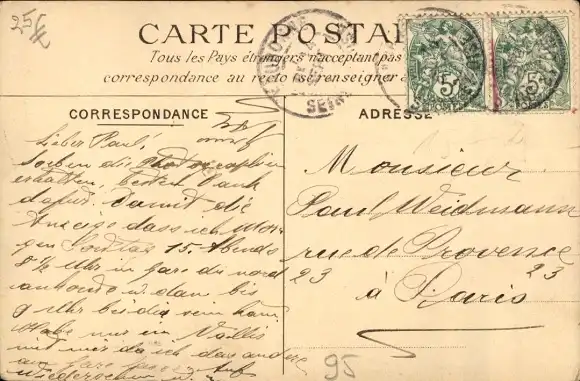 25 €
CARTE POSTAL
Tous les Pays étrangers n'acceptant pas
correspondance au recto (se renseigner à
CORRESPONDANCE
ADRESSE
5
5
POSTES
SEINE
Lieber Paul!
Soeben die Photographien
erhalten, besten Dank
dafür. Damit die
Anzeige dass ich Mor-
gen Sonntag 15. Abends
8½ Uhr in gare du nord
ankomme u. dann bis
9 Uhr bei dir sein kann
Habe nur ein
mit mir da ich das andere
am gare lasse. Auf
wiedersehen
Monsieur
Paul Weidmann
rue de Provence
23 23
à Paris
95